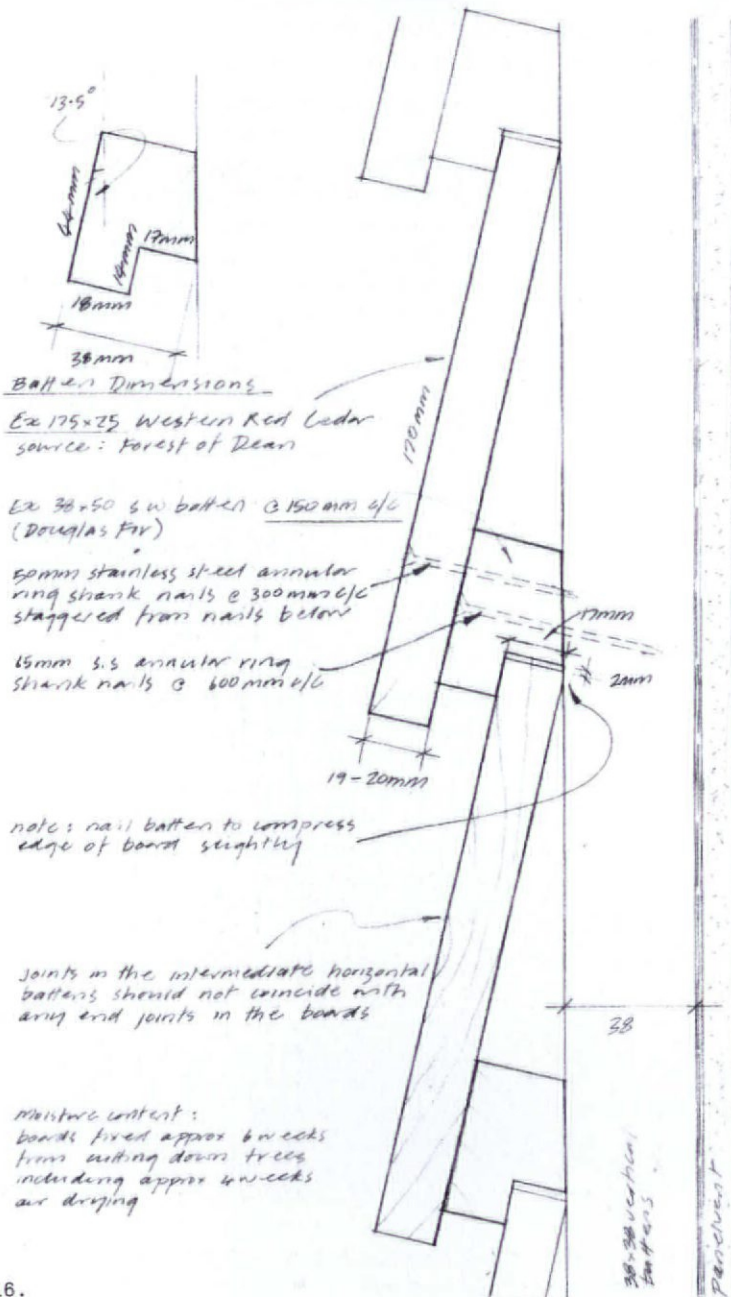 13.5°
44mm
17mm
14mm
18mm
38mm
Batten Dimensions
Ex 175x25 Western Red Cedar
source: Forest of Dean
170mm
Ex 38x50 s w batten @ 150mm c/c
(Douglas Fir)
50mm stainless steel annular
ring shank nails @ 300mm c/c
staggered from nails below
17mm
65mm s.s annular ring
shank nails @ 600mm c/c
2mm
19-20mm
note: nail batten to compress
edge of board slightly
joints in the intermediate horizontal
battens should not coincide with
any end joints in the boards
38
moisture content:
boards fixed approx 6 weeks
from cutting down trees
including approx 4 weeks
air drying
38x38 vertical
battens
panelvent
16.